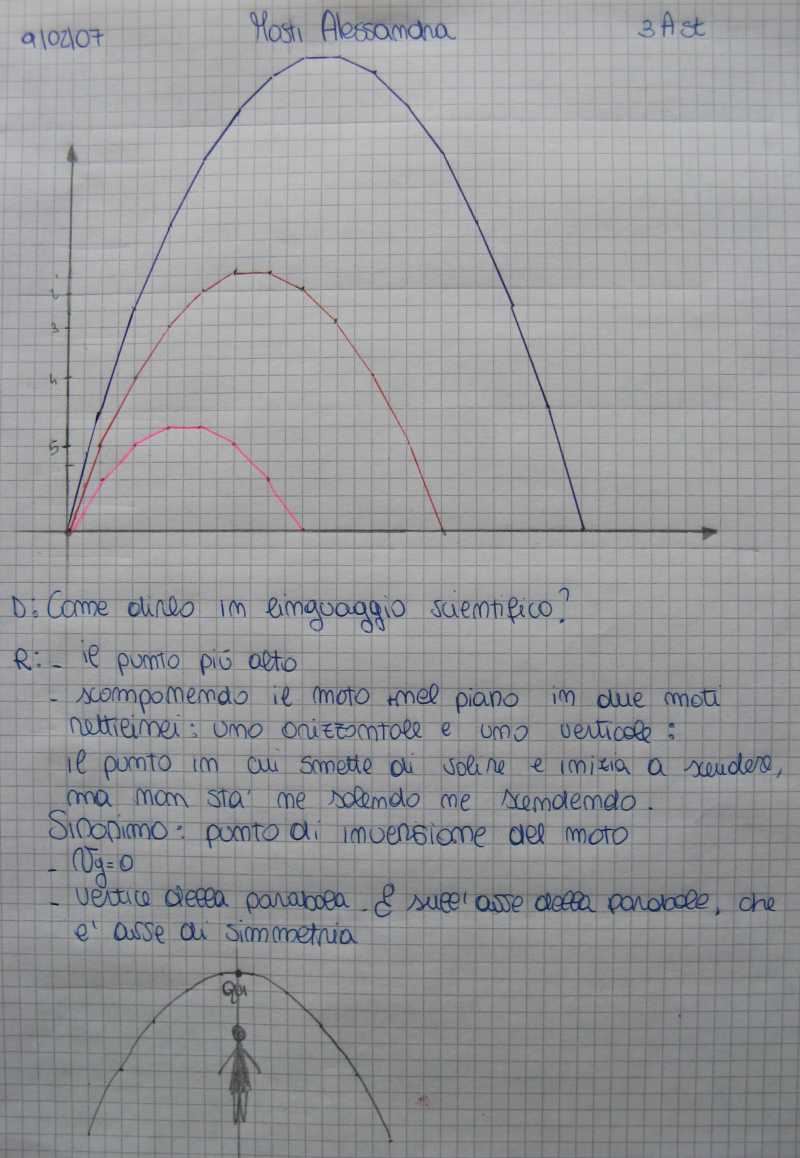 9/02/07 Mosti Alessandra 3 A st
2
3
4
5
D: Come dirlo in linguaggio scientifico?
R: - il punto più alto
- scomponendo il moto nel piano in due moti
rettilinei: uno orizzontale e uno verticale:
il punto in cui smette di salire e inizia a scendere,
ma non sta' ne salendo ne scendendo.
Sinonimo: punto di inversione del moto
- Vy=0
- vertice della parabola. È sull'asse della parabola, che
e' asse di simmetria
Qui